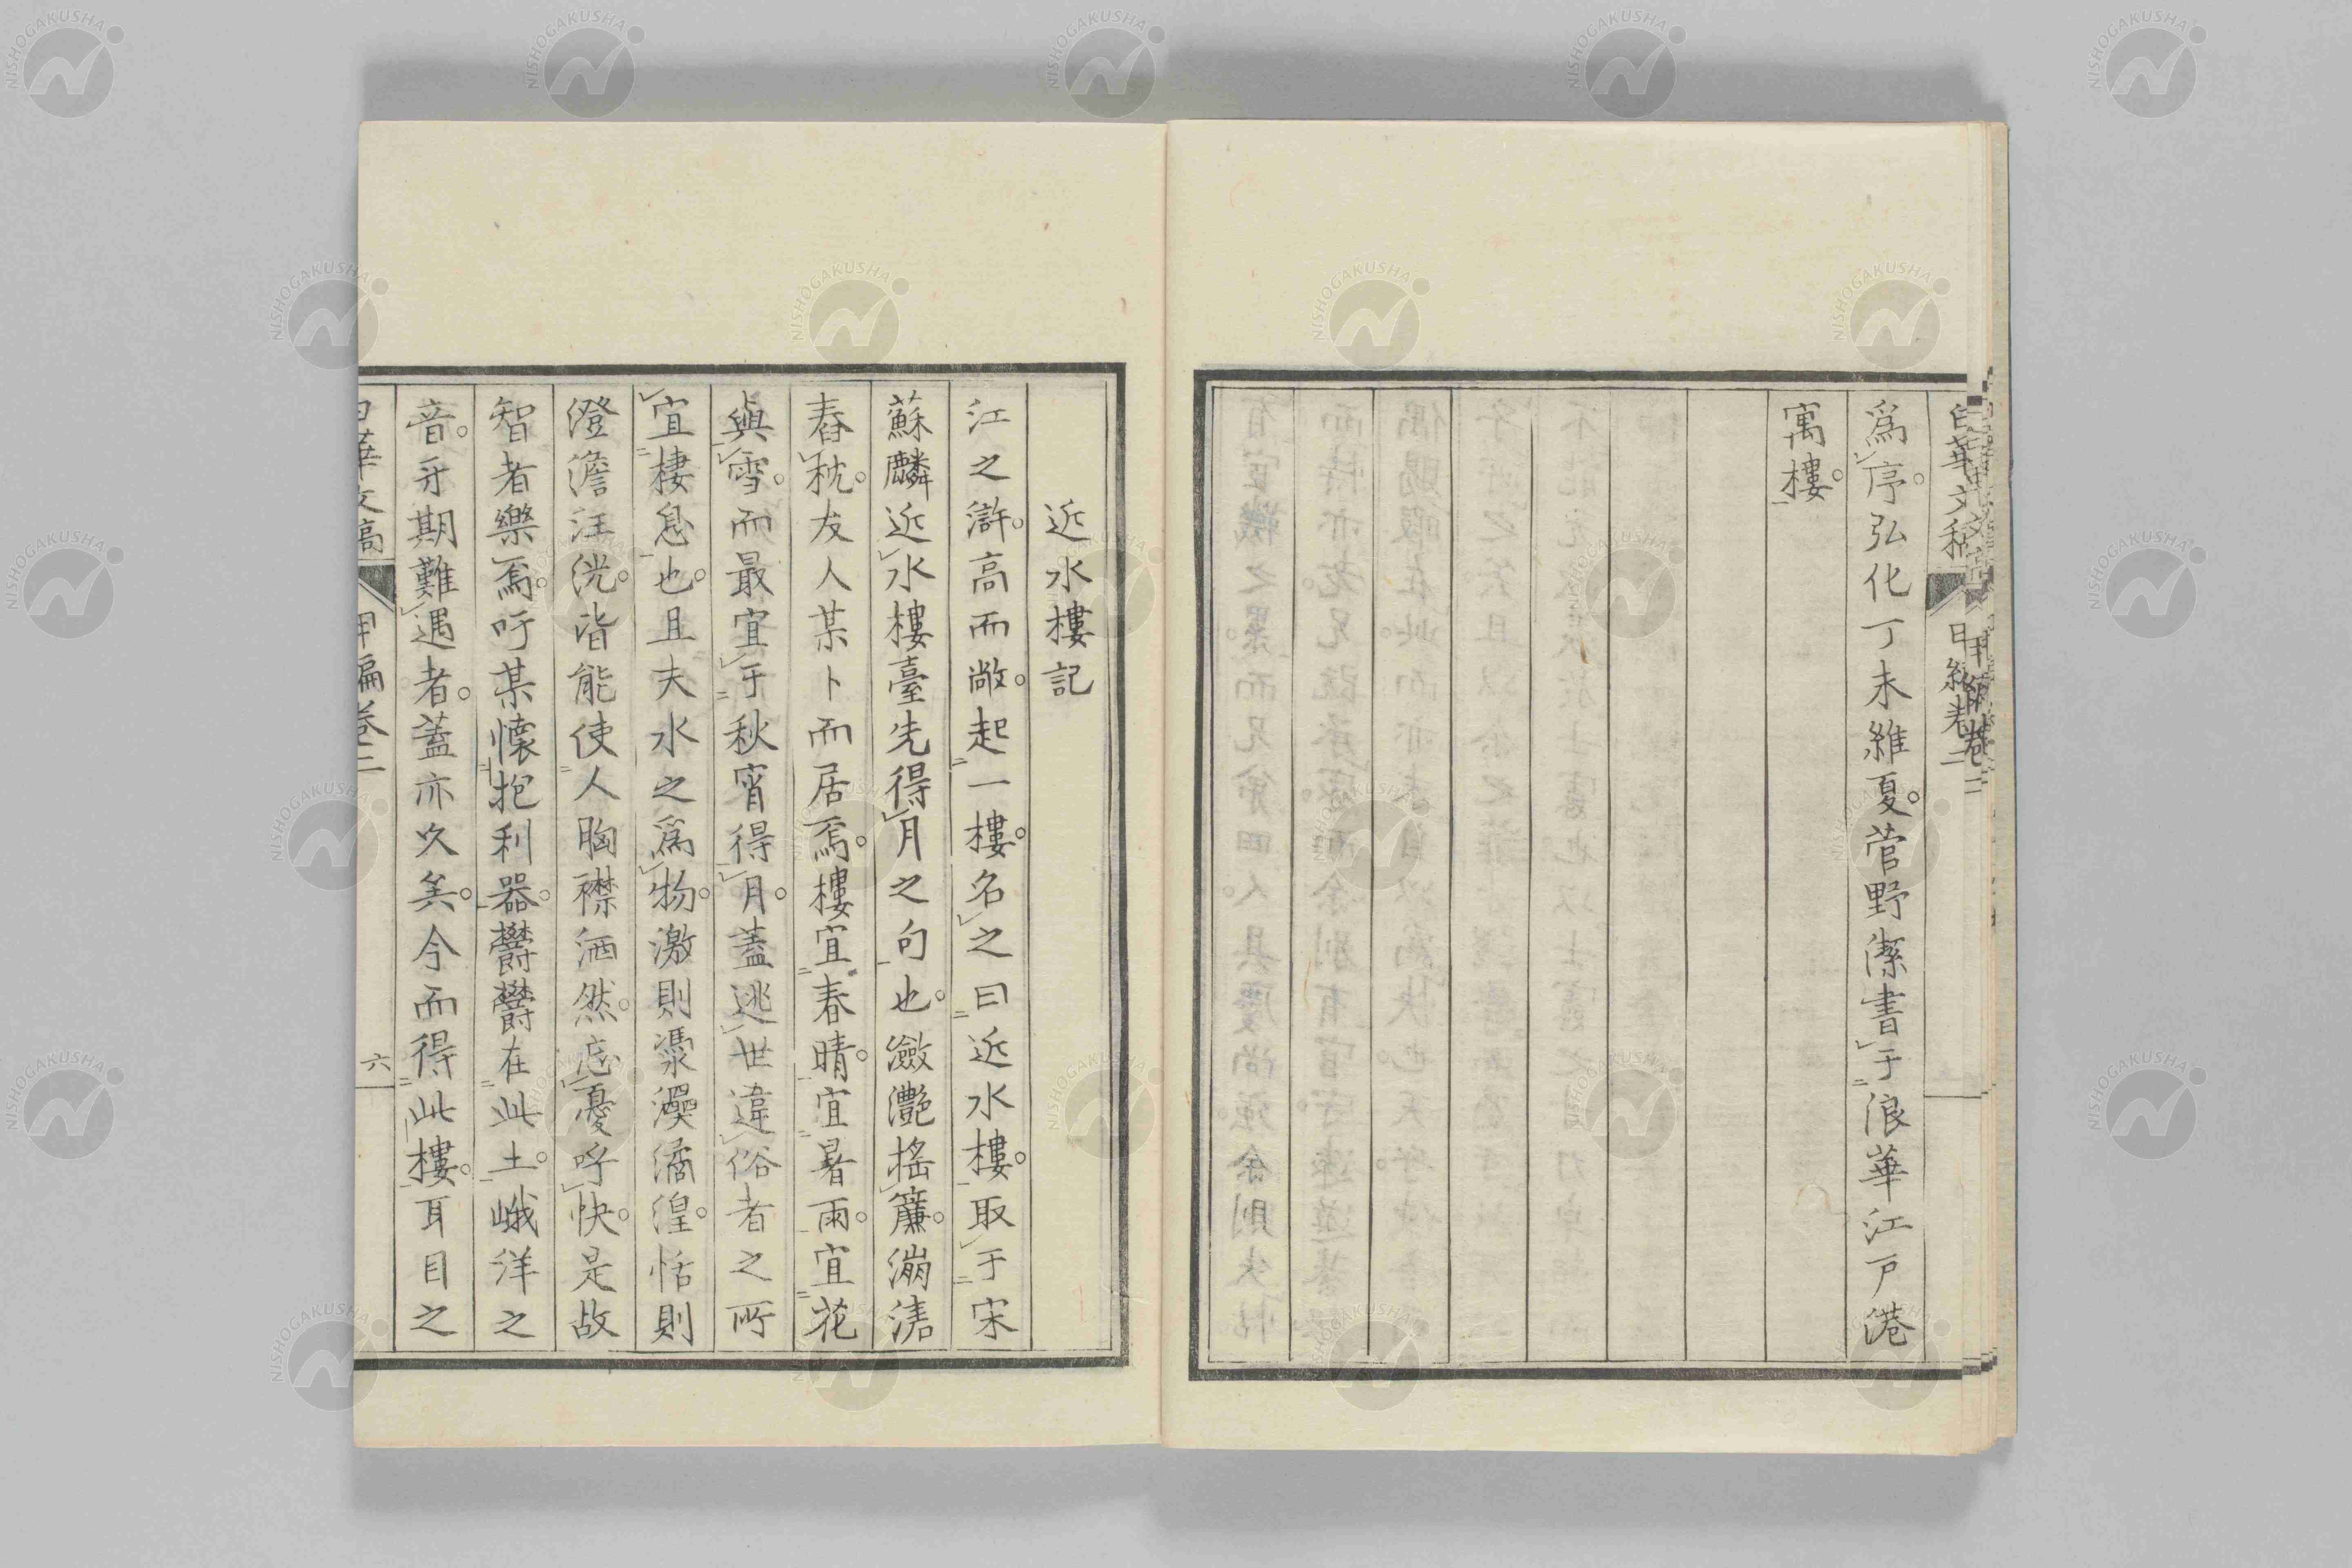 爲序。弘化丁未維夏。菅野潔書于浪華江戸港
寓樓。
近水樓記
江之滸。高而敞。起一樓。名之曰近水樓。取于宋
蘇麟近水樓臺先得月之句也。瀲灔搖簾。漰湱
舂枕。友人某卜而居焉。樓宜春晴。宜暑雨。宜花
與雪。而最宜于秋宵得月。蓋逃世違俗者之所
宜棲息也。且夫水之爲物。激則澩灂潏湟。恬則
澄澹汪洸。皆能使人胸襟洒然。忘憂呼快。是故
智者樂焉。吁某懷抱利器。鬱鬱在此土。峨洋之
音。牙期難遇者。蓋亦久矣。今而得此樓。耳目之
白華文稿 甲編卷二 六